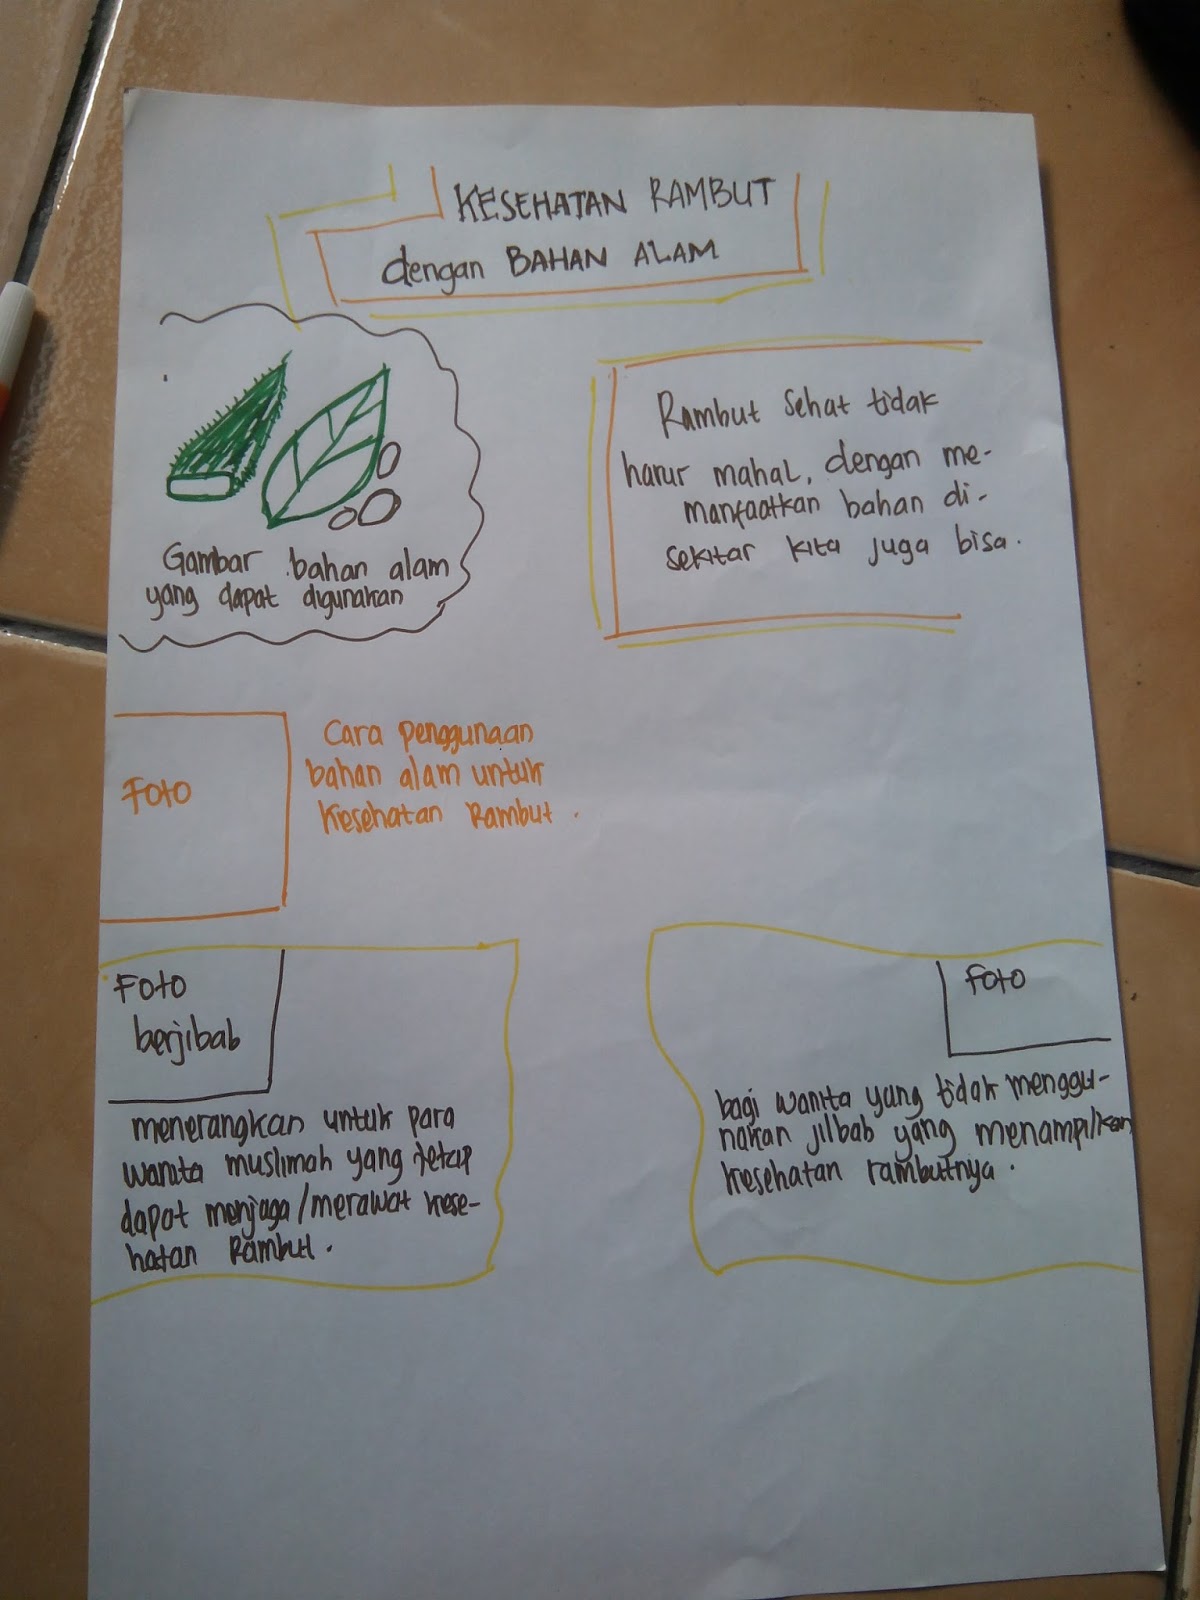 KESEHATAN RAMBUT
dengan BAHAN ALAM
Gambar bahan alam
yang dapat digunakan
Rambut Sehat tidak
harur mahal, dengan me-
manfaatkan bahan di-
sekitar kita juga bisa.
Foto
Cara penggunaan
bahan alam untuk
Kesehatan Rambut.
Foto
berjibab
menerangkan untuk para
wanita muslimah yang tetap
dapat menjaga/merawat kese-
hatan Rambut.
Foto
bagi wanita yang tidak menggu-
nakan jilbab yang menampilkan
kesehatan rambutnya.